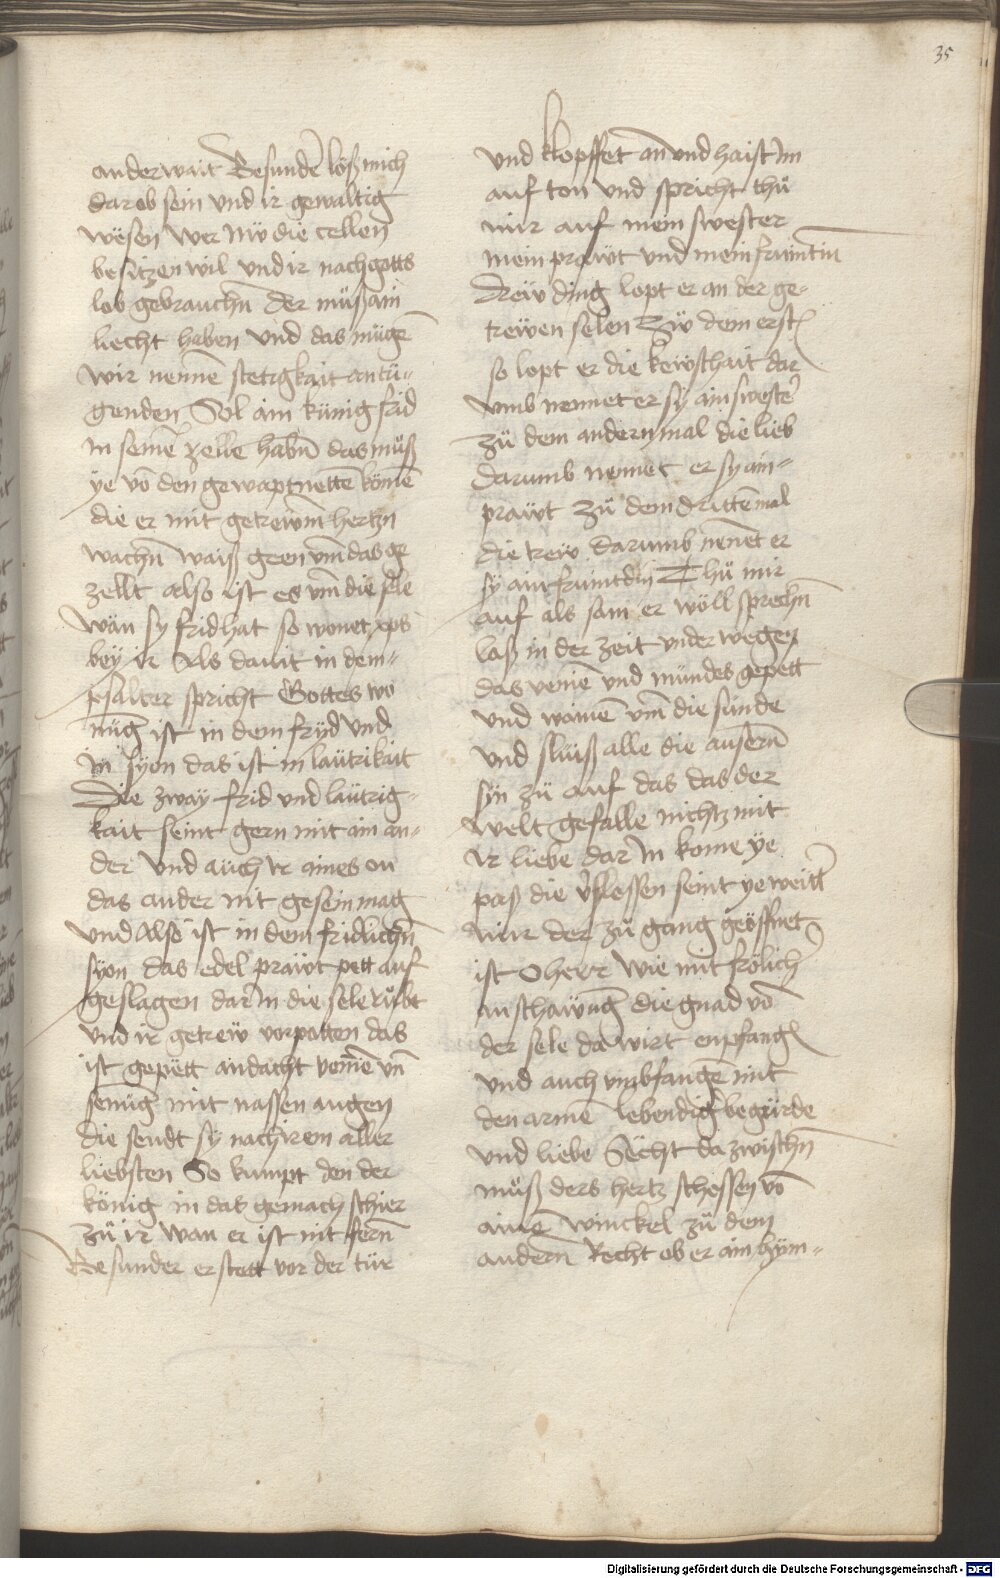 35
anderwait Besunder löß mich
dar ob sein vnd ir gewaltig
wësen wer nw̋ die cellen
besitzen wil vnd ir nach gotts
lob gebrauchn̄ der müß ain
liecht haben vnd das mügē
wir nennē stetigkait an tu-
genden Sol ain künig frid
in seinē zelle habn̄ das müß
ye vō den gewaptnettē kömē
die er mit getrewm̄ hertzn
wachn̄ waiß geen vm̄ das ge
zellt also ist es vm̄ die sele
Wan sy frid hat so wonet xps
bey ir Als dauit in dem
psalter spricht Gottes wo
nūg ist in dem fryd vnd
in syon das ist in lautrikait
Die zway frid vnd lautrig-
kait seint gern mit ain an-
der vnd auch ir aines on
das ander nit gesein mag
vnd also ist in dem fridlichn̄
syon das edel prawt pett auf
geslagen dar in die sele rübt
vnd ir getrew vorpotten das
ist gepett andacht venīe vn̄
senūg mit nassen augen
die sendt sy nach irem aller
liebsten So kumpt den der
könig in das gemach schier
zü ir wan er ist nit fern̄
Besunder er stett vor der tür
vnd klopffet an vnd haist im
auf ton vnd spricht thü
mir auf mein swester
mein prawt vnd mein fruintin̄
Drew ding lopt er an der ge-
trewen selen Zw dem erst
so lopt er die kewschait dar
vmb nennet er sy ain swester
zü dem andern mal die lieb
darumb nennet er sy ain
prawt zü dem drittē mal
die trew darumb nēnet er
sy ain fruintdin Thü mir
auf als sam er wöll sprechn̄
laß in der zeit vnder wegen
das venīe vnd mundes gepett
vnd wainē vm̄ die sunde
vnd sluiß alle die ausern̄
syn zü auf das das der
welt gefalle nichtz mit
ir liebe dar in kome ye
paß die v̄slossen seint ye weitt
mir der zü gang geöffnet
ist O herr wie mit frölich
an schawūg die gnad vō
der sele da wirt enpfang
vnd auch vmbfangē mit
den armē lebendig begürde
vnd liebe Secht da zwischn̄
müß ders hertz schossen vō
ainē winckel zü dem
andern̄ Recht ob er ain hym-
Digitalisierung gefördert durch die Deutsche Forschungsgemeinschaft - DFG